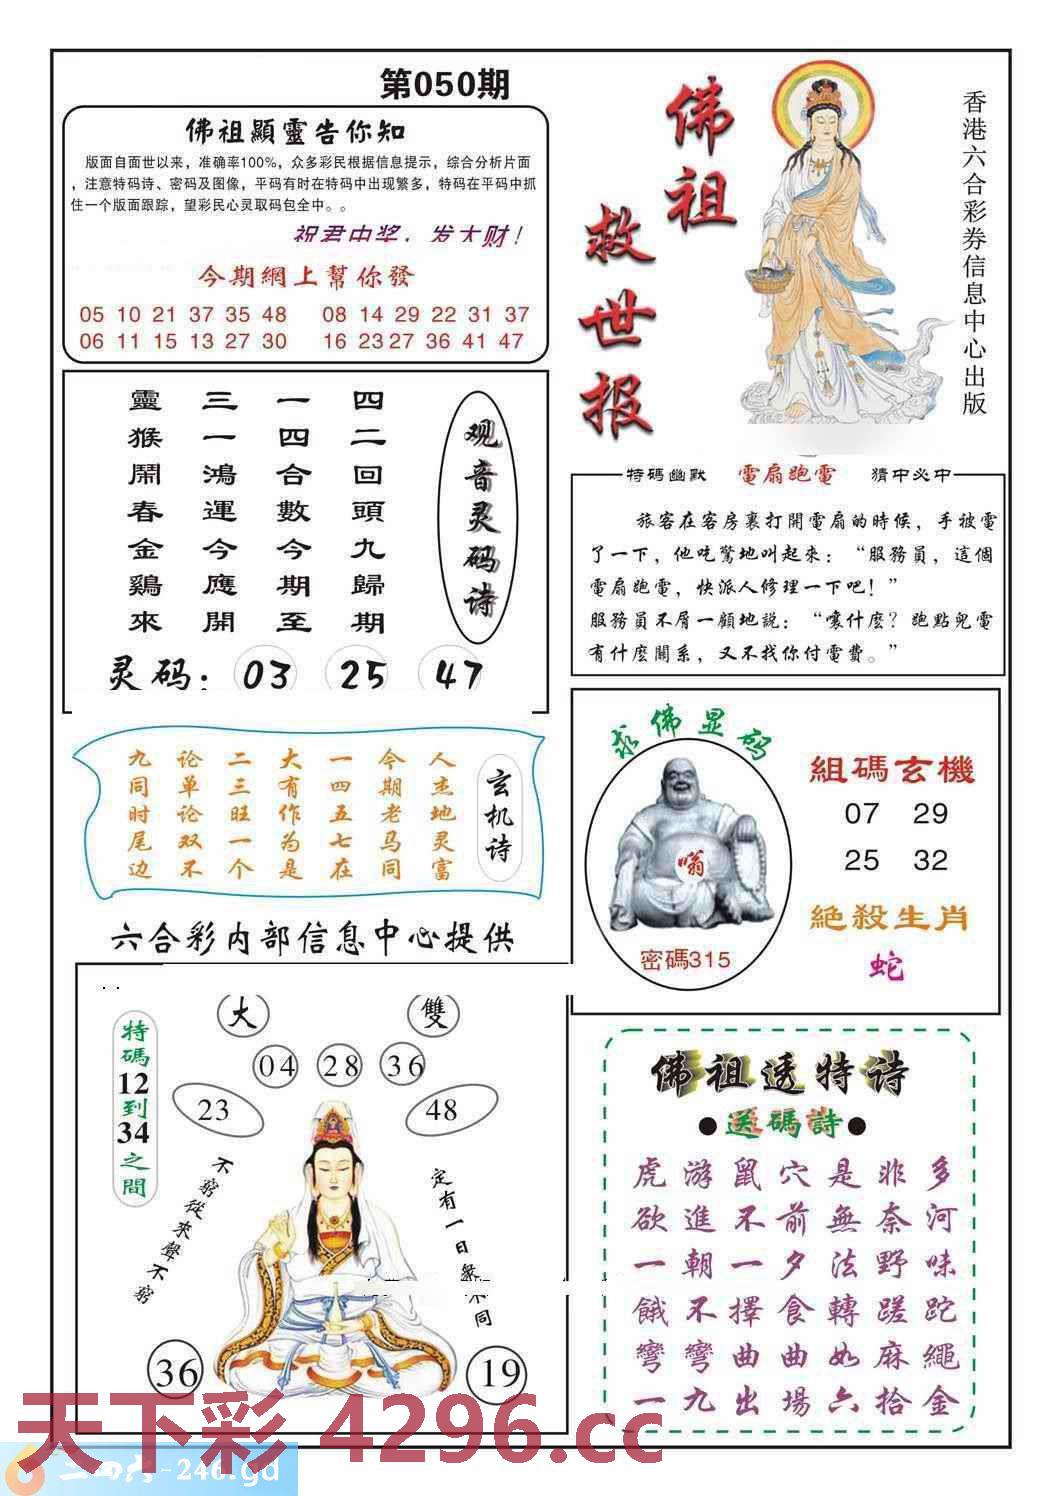 第050期
佛祖顯靈告你知
版面自面世以来，准确率100%，众多彩民根据信息提示，综合分析片面
，注意特码诗、密码及图像，平码有时在特码中出现繁多，特码在平码中抓
住一个版面跟踪，望彩民心灵取码包全中。。
祝君中奖，发大财！
今期網上幫你發
05 10 21 37 35 48 08 14 29 22 31 37
06 11 15 13 27 30 16 23 27 36 41 47
佛祖
救世报
香港六合彩券信息中心出版
观音灵码诗
四二回頭九歸期
一四合數今期至
三一鴻運今應開
靈猴鬧春金鷄來
灵码：03 25 47
特码幽默 電扇跑電 猜中必中
旅客在客房裏打開電扇的時候，手被電
了一下，他吃驚地叫起來：“服務員，這個
電扇跑電，快派人修理一下吧！”
服務員不屑一顧地説：“嚷什麼？跑點兒電
有什麼關系，又不找你付電費。”
玄机诗
人杰地灵富
今期老马同
一四五七在
大有作为是
二三旺一个
论单论双不
九同时尾边
求佛显码
密碼315
組碼玄機
07 29
25 32
絕殺生肖
蛇
六合彩内部信息中心提供
特碼12到34之間
大 雙
04 28 36
23 48
不窮從來聲不窮
定有一日象不同
36 19
佛祖透特诗
●送碼詩●
虎游鼠穴是非多
欲進不前無奈河
一朝一夕法野味
餓不擇食轉蹉跎
彎彎曲曲如麻繩
一九出場六拾金
天下彩 4296.cc
二四六-246.gd